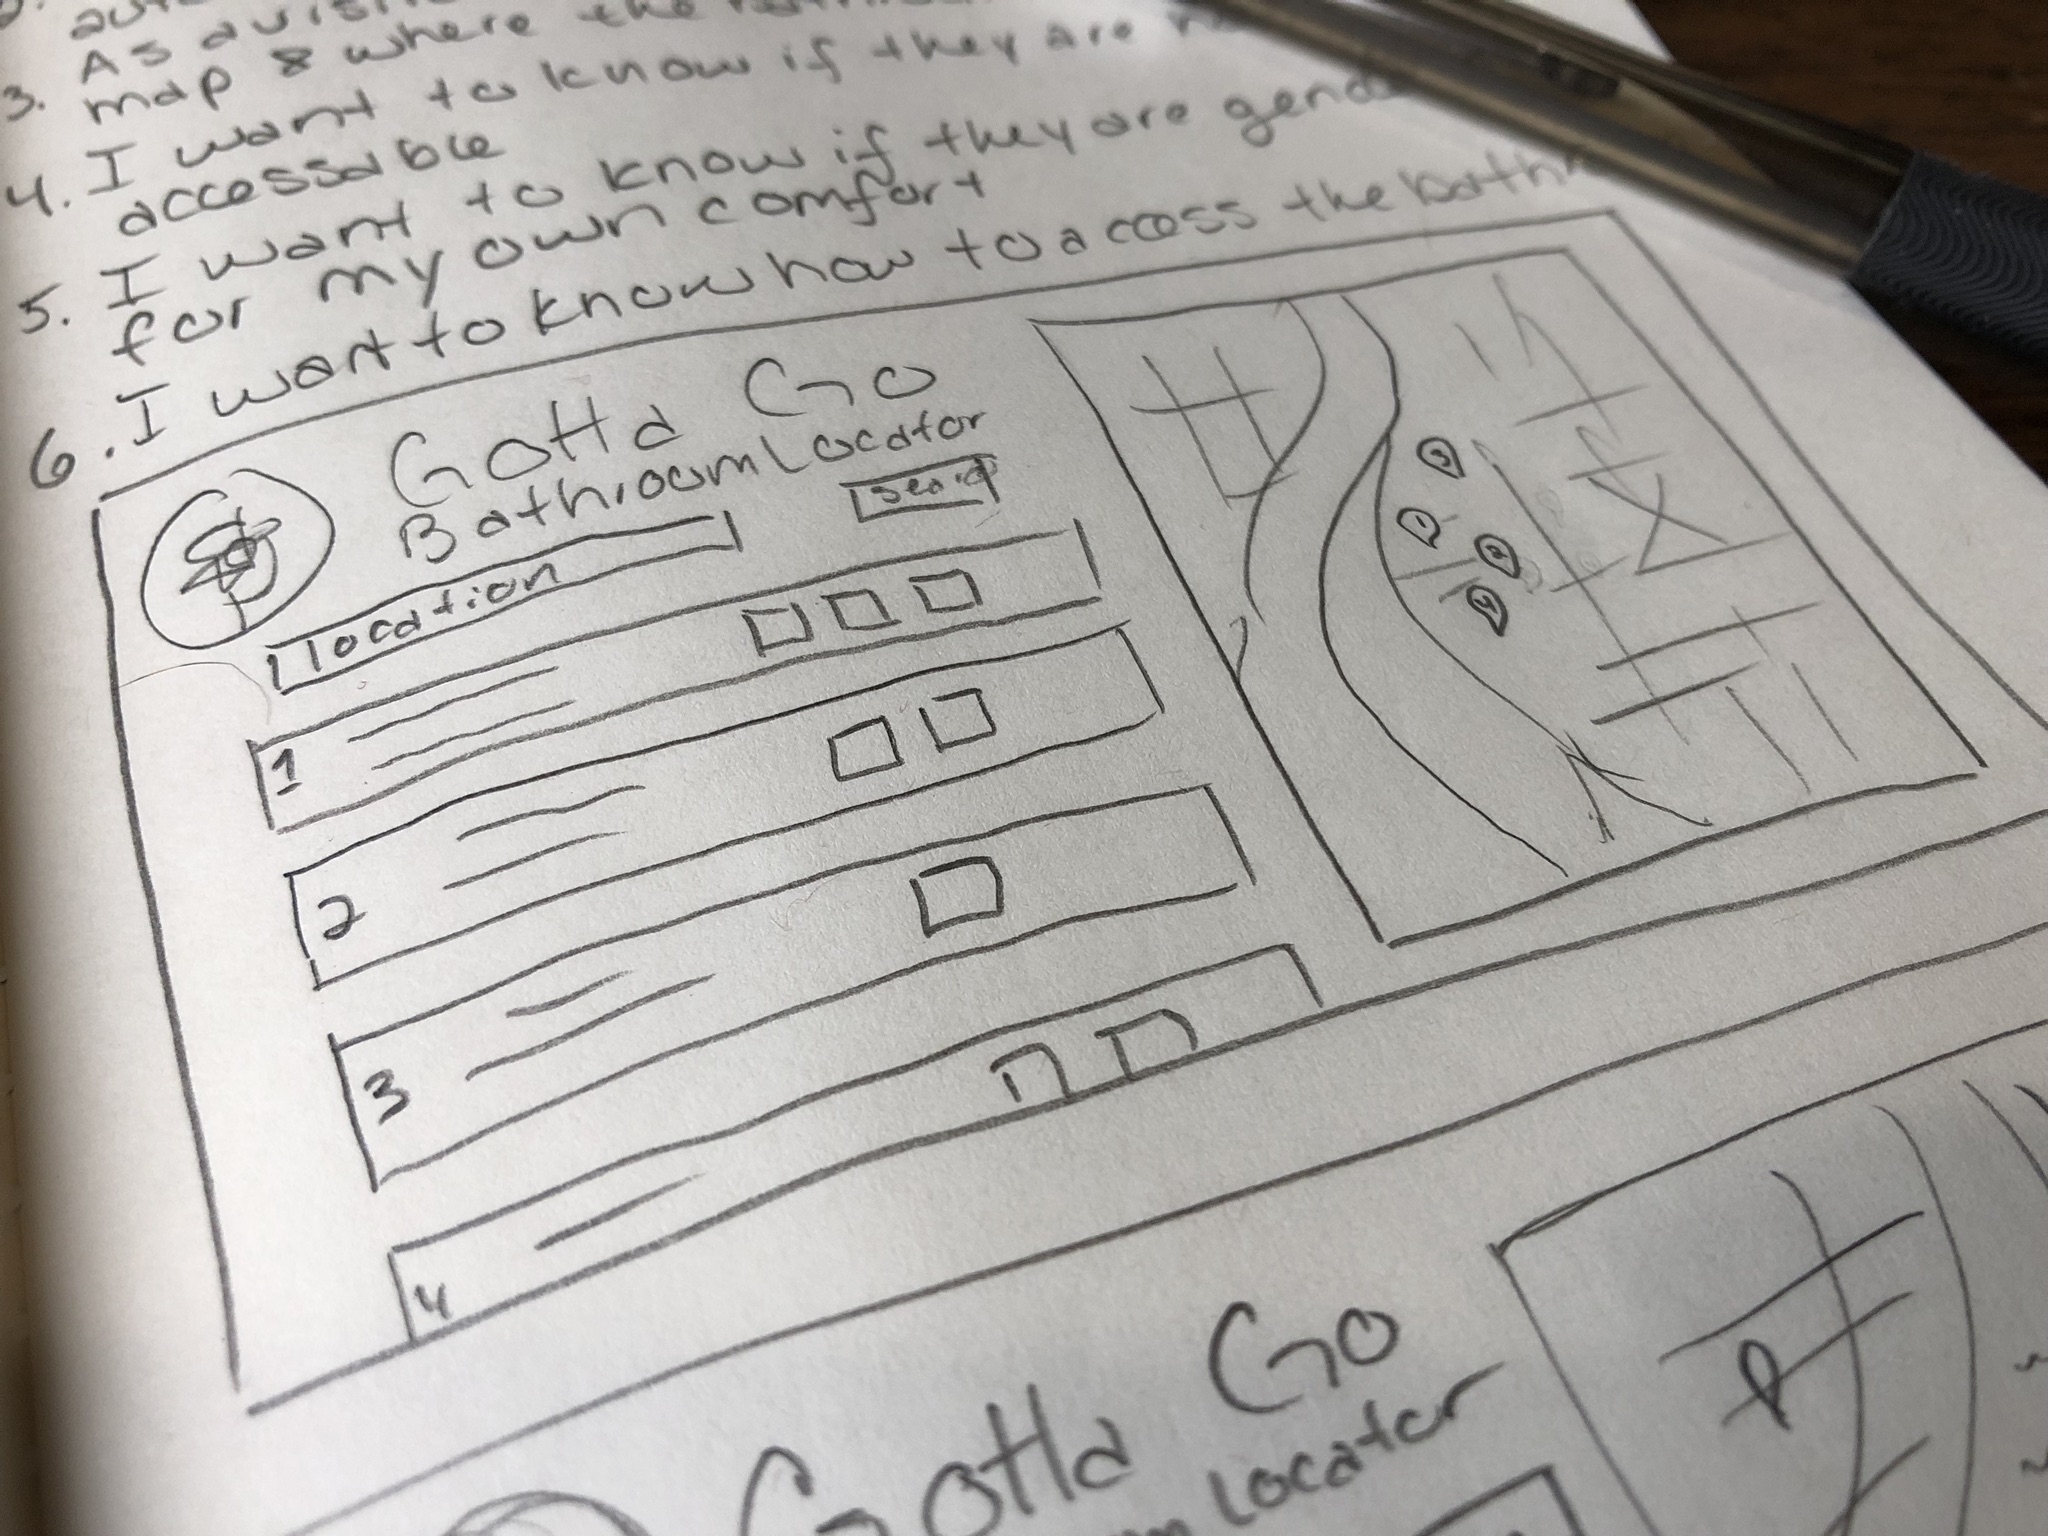 3. map & where the
4. I want to know if they are
accessable
5. I want to know if they are
for my own comfort
6. I want to know how to access the
Gotta Go
Bathroom Locator
location
1
2
3
4
3
1
2
4
Gotta Go
Locator